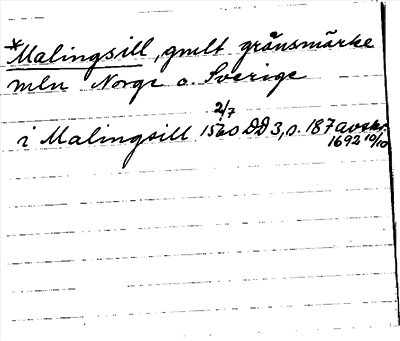 *Malingsill, gmlt gränsmärke
mln Norge o. Sverige
2/7
i Malingsill 1560 DD 3, s. 187 avskr.
1692 10/10